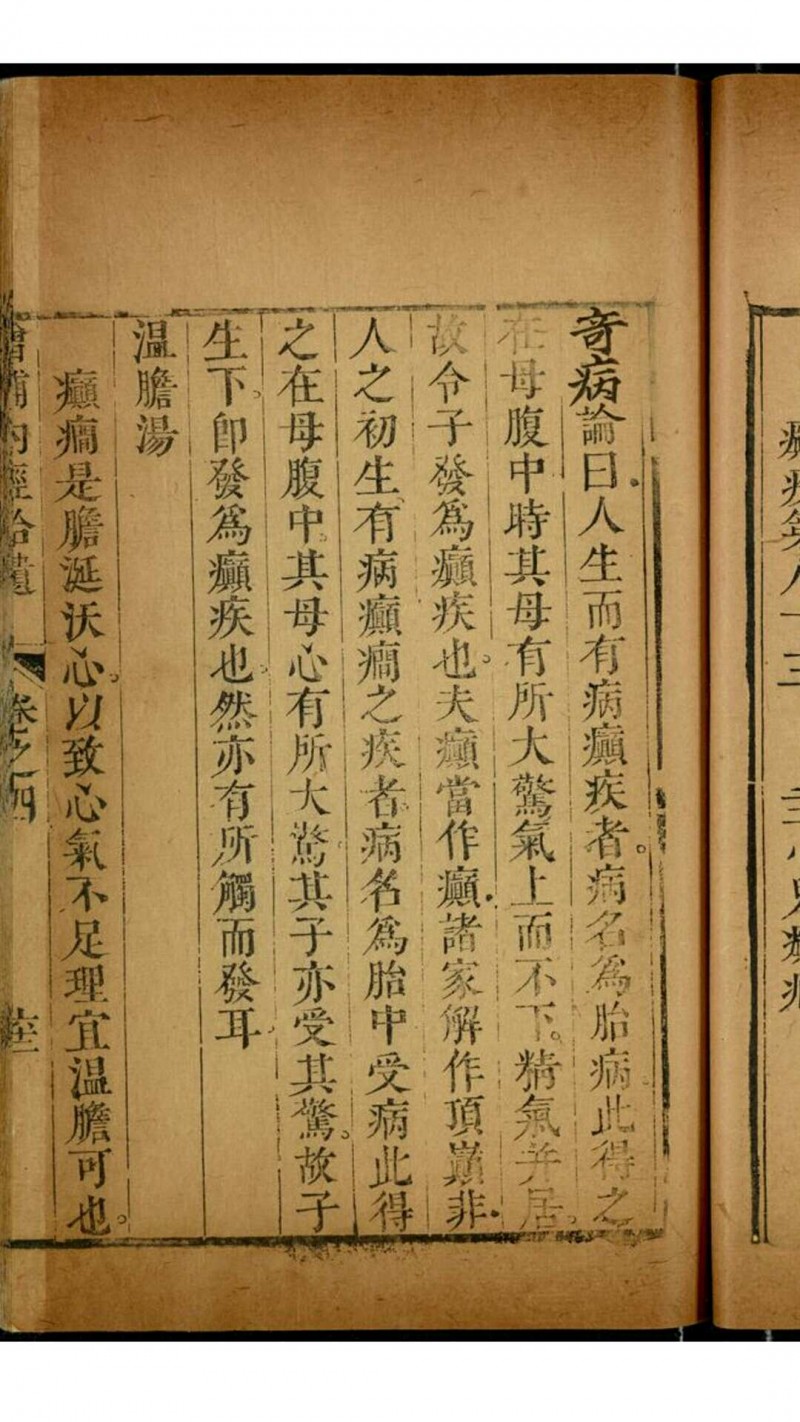 奇病論曰人生而有病癲疾者。病名爲胎病此得之
在母腹中時其母有所大驚氣上而不下。精氣并居。
故令子發爲癲疾也。夫癲當作癲諸家解作頂巔非
人之初生有病癲癎之疾者病名爲胎中受病此得
之在母腹中。其母心有所大驚其子亦受其驚。故子
生下。卽發爲癲疾也。然亦有所觸而發耳
温膽湯
癲癎是膽涎沃心。以致心氣不足理宜温膽可也。
内經拾遺
卷之四